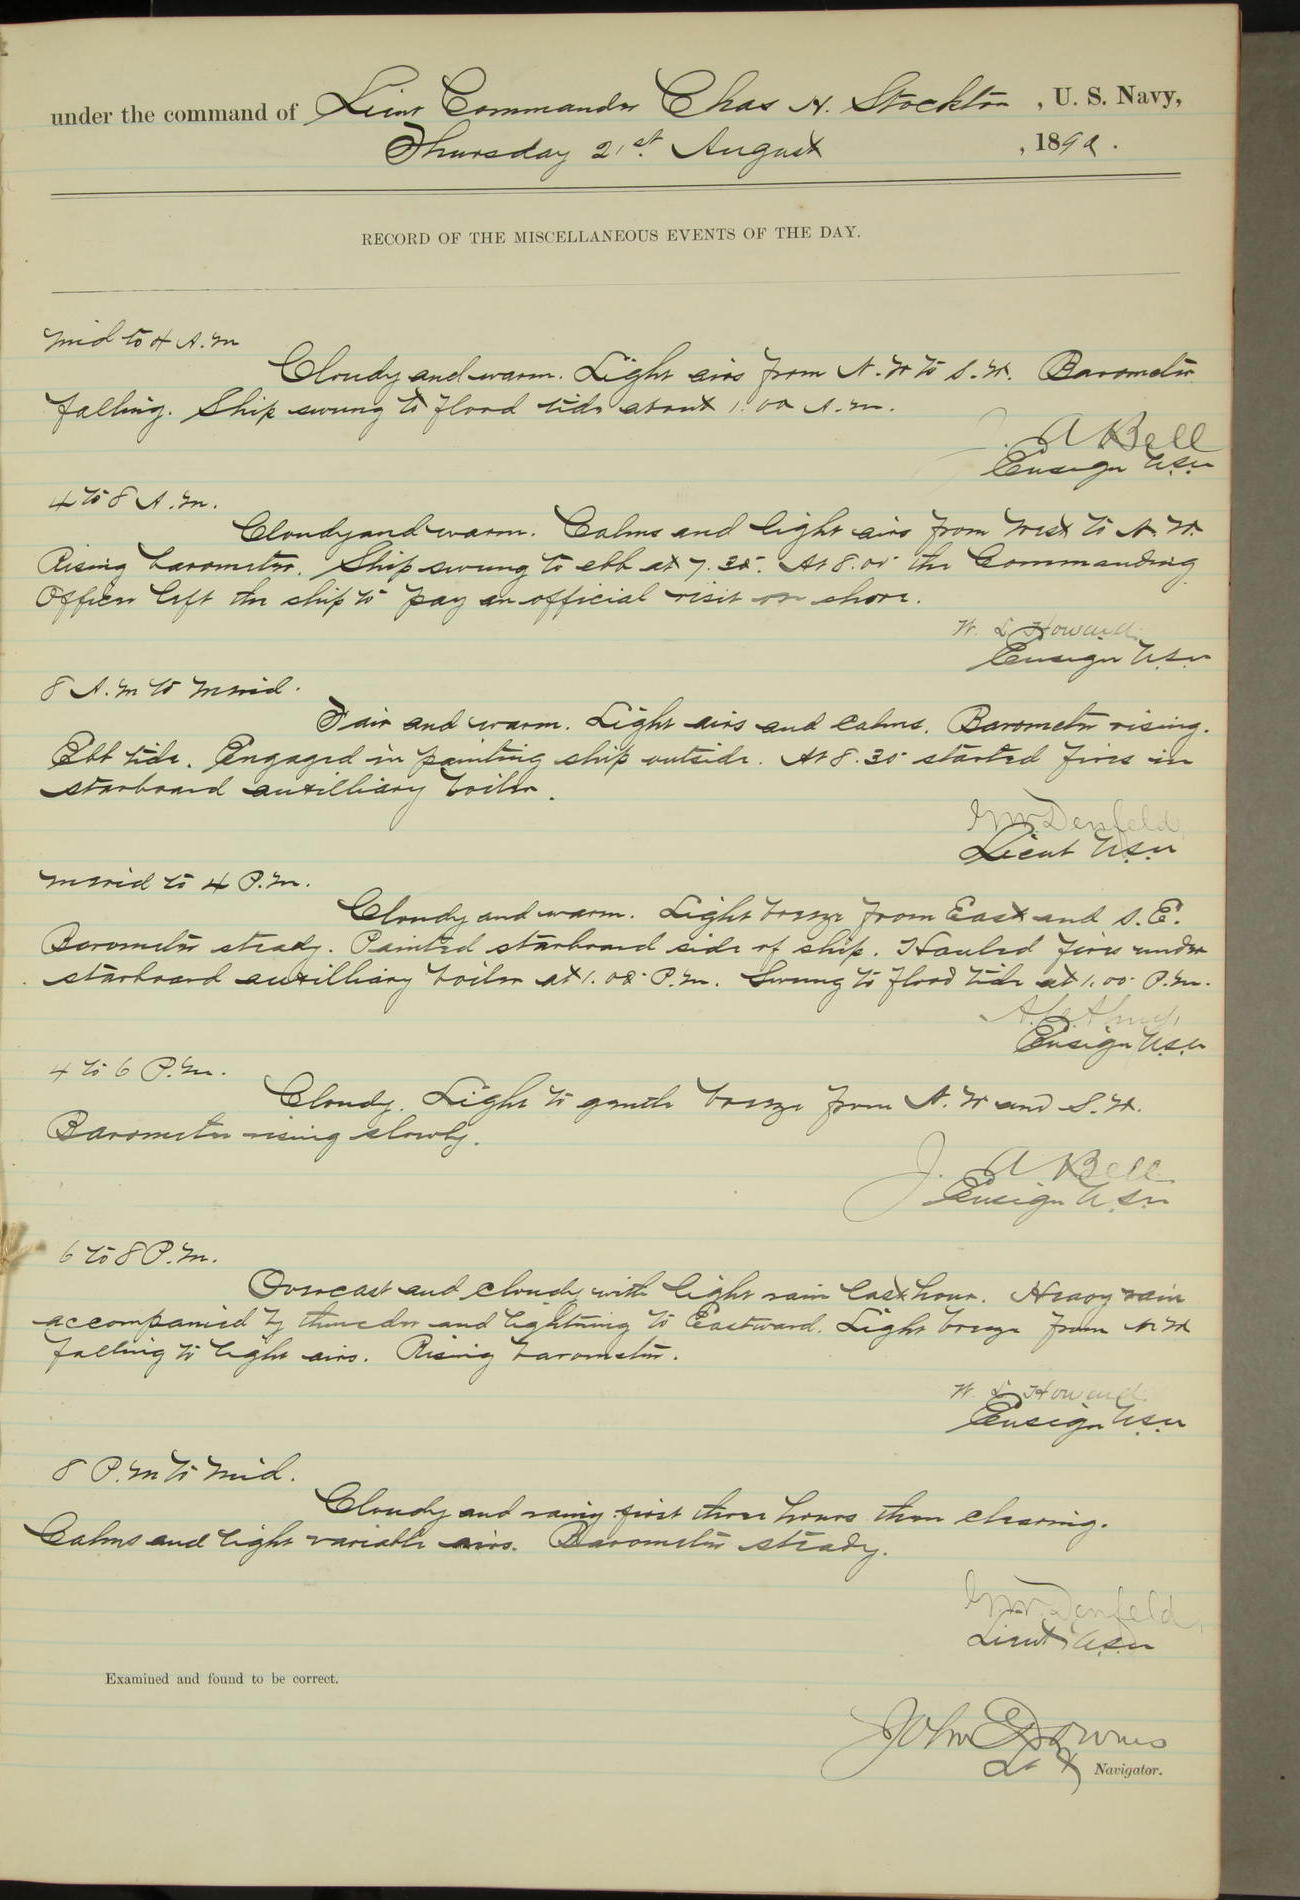 under the command of Lieut Commander Chas H. Stockton, U. S. Navy,
Thursday 21st. August, 1890.
RECORD OF THE MISCELLANEOUS EVENTS OF THE DAY.
Mid to 4 A.M
Cloudy and warm. Light airs from N.W to S.W. Barometer
falling. Ship swung to flood tide about 1.00 A.M.
J. A Bell
Ensign U.S.N
4 to 8 A.M.
Cloudy and warm. Calms and light airs from West to N.W.
Rising barometer. Ship swung to ebb at 7.35. At 8.00 the Commanding
Officer left the ship to pay an official visit on shore.
W. L Howard
Ensign U.S.N
8 A.M to Merid.
Fair and warm. Light airs and calms. Barometer rising.
Ebb tide. Engaged in painting ship outside. At 8.30 started fires in
starboard auxilliary boiler.
Denfeld
Lieut U.S.N
Merid to 4 P.M.
Cloudy and warm. Light breeze from East and S.E.
Barometer steady. Painted starboard side of ship. Hauled fires under
starboard auxilliary boiler at 1.00 P.M. Swung to flood tide at 1.00 P.M.
Ensign U.S.N
4 to 6 P.M.
Cloudy. Light to gentle breeze from N.W and S.W.
Barometer rising slowly.
J. A Bell
Ensign U.S.N
6 to 8 P.M.
Overcast and cloudy with light rain last hour. Heavy rain
accompanied by thunder and lightning to Eastward. Light breeze from N.W
falling to light airs. Rising barometer.
W. L Howard
Ensign U.S.N
8 P.M to Mid.
Cloudy and rainy first three hours then clearing.
Calms and light variable airs. Barometer steady.
Denfeld
Lieut U.S.N
Examined and found to be correct.
John Downes
Lt & Navigator.